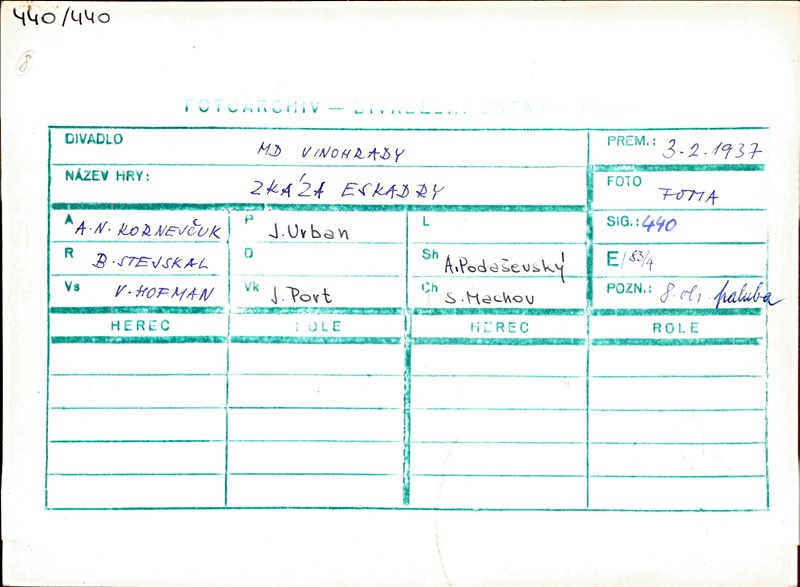 440/440
8
FOTOARCHIV — DIVADELNÍ ÚSTAV —
DIVADLO MD VINOHRADY PREM.: 3.2.1937
NÁZEV HRY: ZKÁZA ESKADRY FOTO FOMA
A A.N. KORNEJČUK P J.Urban L SIG.: 440
R B. STEJSKAL D Sh A.Podaševský E/83/4
Vs V. HOFMAN Vk J.Port Ch S.Machov POZN.: 8.obr. paluba
HEREC ROLE HEREC ROLE